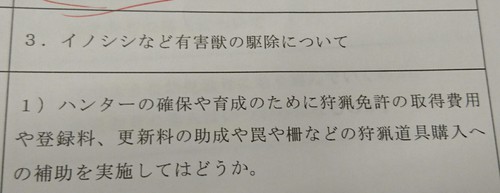 3．イノシシなど有害獣の駆除について
1）ハンターの確保や育成のために狩猟免許の取得費用
や登録料、更新料の助成や罠や柵などの狩猟道具購入へ
の補助を実施してはどうか。